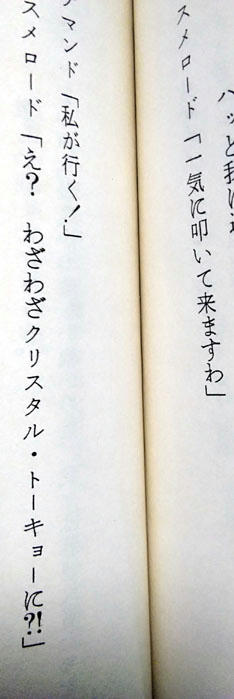 ハッと我に
スメロード「一気に叩いて来ますわ」
マンド「私が行く!」
スメロード「え? わざわざクリスタル・トーキョーに?!」